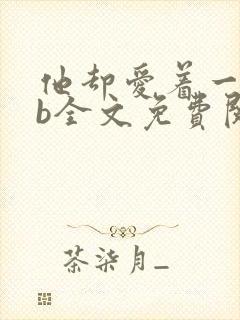 他却爱着一
b全文免費閱
茶柒月_